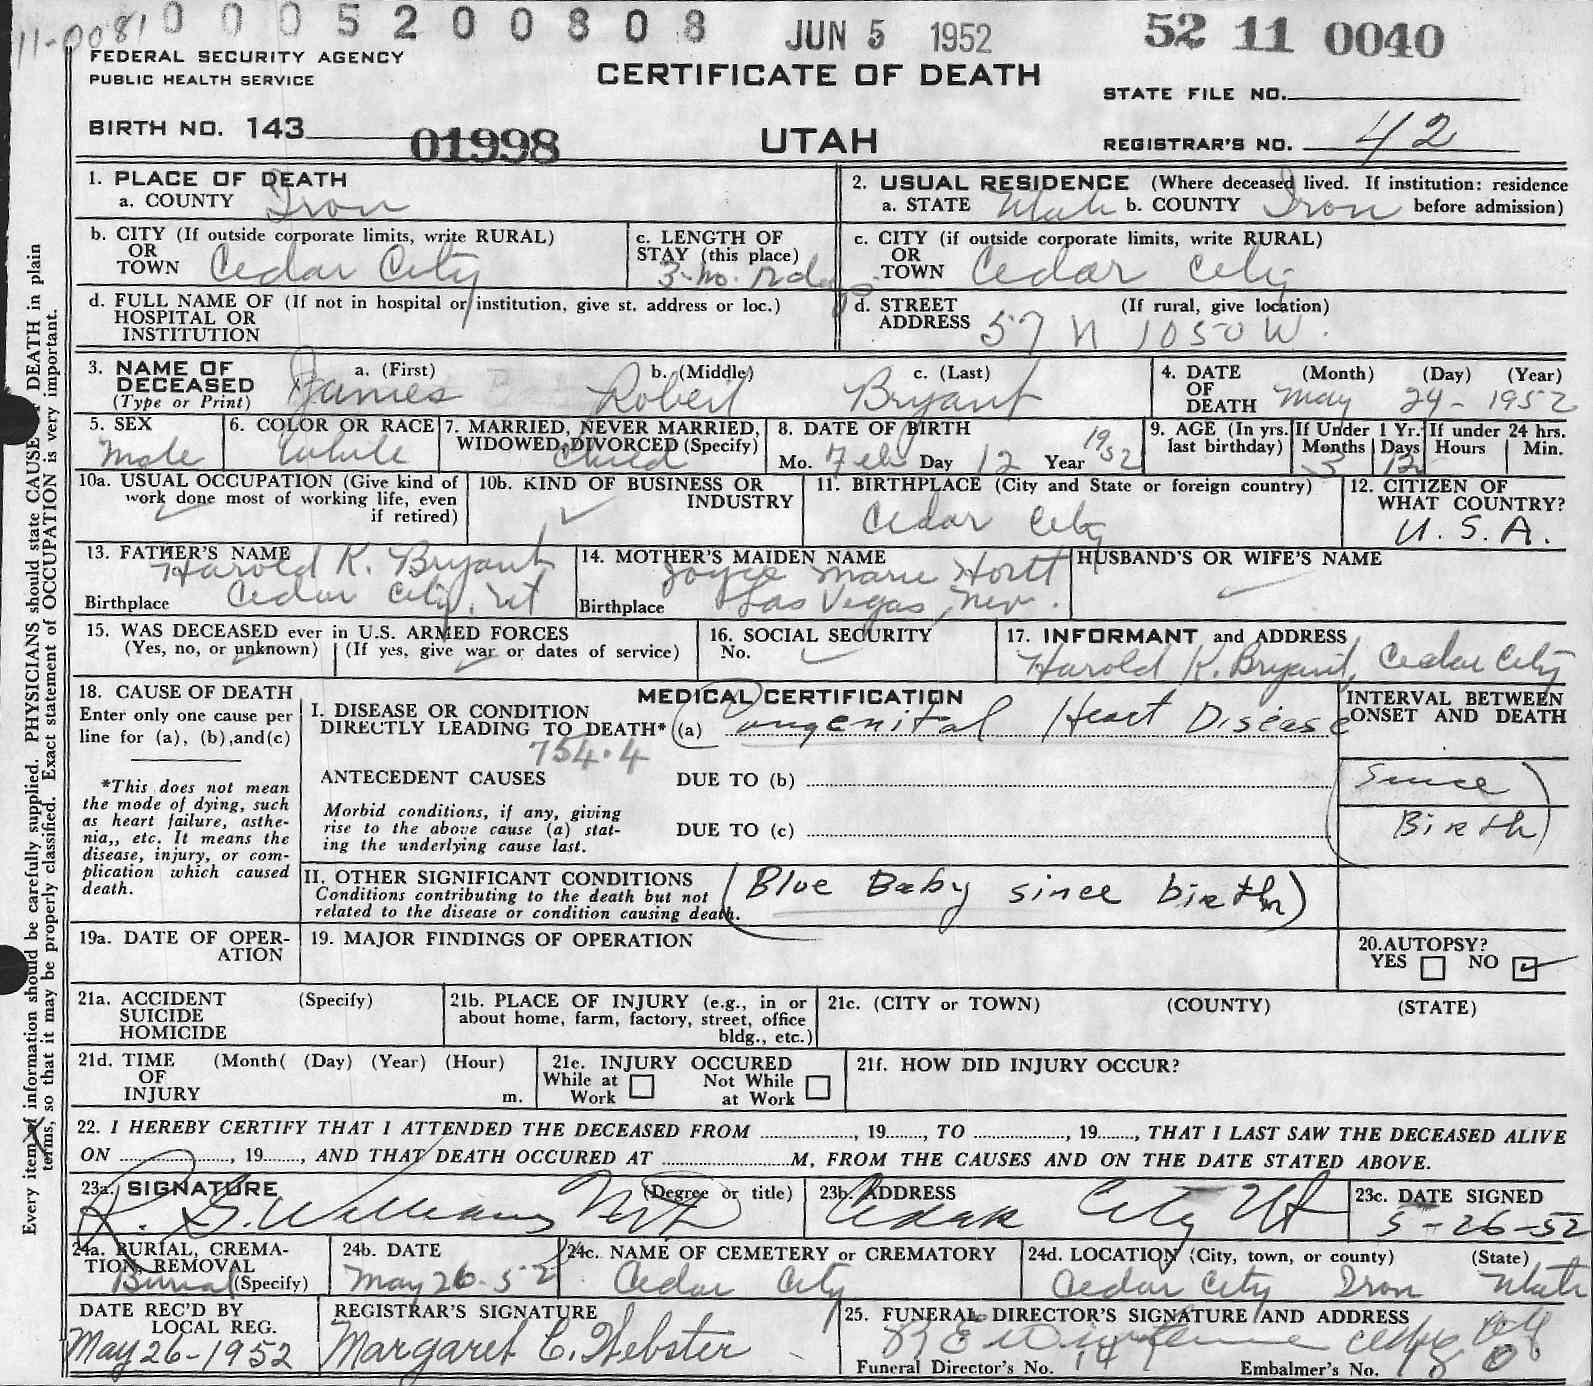 11-0081 0 0 0 5 2 0 0 8 0 8 JUN 5 1952 52 11 0040
FEDERAL SECURITY AGENCY
PUBLIC HEALTH SERVICE
CERTIFICATE OF DEATH
STATE FILE NO.
BIRTH NO. 143 01998 UTAH REGISTRAR'S NO. 42
1. PLACE OF DEATH
a. COUNTY Iron
2. USUAL RESIDENCE (Where deceased lived. If institution: residence
a. STATE Utah b. COUNTY Iron before admission)
b. CITY (If outside corporate limits, write RURAL)
OR
TOWN Cedar City
c. LENGTH OF
STAY (this place)
3 mo. 12 days
c. CITY (if outside corporate limits, write RURAL)
OR
TOWN Cedar City
d. FULL NAME OF (If not in hospital or institution, give st. address or loc.)
HOSPITAL OR
INSTITUTION
d. STREET (If rural, give location)
ADDRESS 57 N 1050 W.
3. NAME OF DECEASED
(Type or Print)
a. (First) James
b. (Middle) Robert
c. (Last) Bryant
4. DATE OF DEATH (Month) (Day) (Year)
May 24 - 1952
5. SEX
Male
6. COLOR OR RACE
White
7. MARRIED, NEVER MARRIED,
WIDOWED, DIVORCED (Specify)
Child
8. DATE OF BIRTH
Mo. Feb Day 12 Year 1952
9. AGE (In yrs. last birthday)
If Under 1 Yr. Months 3 Days 12
If under 24 hrs. Hours Min.
10a. USUAL OCCUPATION (Give kind of
work done most of working life, even
if retired)
10b. KIND OF BUSINESS OR
INDUSTRY
11. BIRTHPLACE (City and State or foreign country)
Cedar City
12. CITIZEN OF
WHAT COUNTRY?
U. S. A.
13. FATHER'S NAME
Harold K. Bryant
Birthplace Cedar City, Ut
14. MOTHER'S MAIDEN NAME
Joyce Marie
Birthplace Las Vegas, Nev.
HUSBAND'S OR WIFE'S NAME
15. WAS DECEASED ever in U.S. ARMED FORCES
(Yes, no, or unknown) (If yes, give war or dates of service)
16. SOCIAL SECURITY
No.
17. INFORMANT and ADDRESS
Harold K. Bryant, Cedar City
18. CAUSE OF DEATH
Enter only one cause per
line for (a), (b), and (c)
*This does not mean
the mode of dying, such
as heart failure, asthe-
nia,, etc. It means the
disease, injury, or com-
plication which caused
death.
MEDICAL CERTIFICATION
I. DISEASE OR CONDITION
DIRECTLY LEADING TO DEATH* (a) Congenital Heart Disease
754.4
ANTECEDENT CAUSES DUE TO (b)
Morbid conditions, if any, giving
rise to the above cause (a) stat-
ing the underlying cause last.
DUE TO (c)
INTERVAL BETWEEN
ONSET AND DEATH
(Since
Birth)
II. OTHER SIGNIFICANT CONDITIONS
Conditions contributing to the death but not
related to the disease or condition causing death.
(Blue Baby since birth)
19a. DATE OF OPER-
ATION
19. MAJOR FINDINGS OF OPERATION
20. AUTOPSY?
YES NO
21a. ACCIDENT (Specify)
SUICIDE
HOMICIDE
21b. PLACE OF INJURY (e.g., in or
about home, farm, factory, street, office
bldg., etc.)
21c. (CITY or TOWN) (COUNTY) (STATE)
21d. TIME (Month( (Day) (Year) (Hour)
OF
INJURY m.
21e. INJURY OCCURED
While at Work Not While at Work
21f. HOW DID INJURY OCCUR?
22. I HEREBY CERTIFY THAT I ATTENDED THE DECEASED FROM , 19 , TO , 19 , THAT I LAST SAW THE DECEASED ALIVE
ON , 19 , AND THAT DEATH OCCURED AT M, FROM THE CAUSES AND ON THE DATE STATED ABOVE.
23a. SIGNATURE (Degree or title)
R. G. Williams
23b. ADDRESS
Cedar City Ut
23c. DATE SIGNED
5-26-52
24a. BURIAL, CREMA-
TION, REMOVAL
Burial (Specify)
24b. DATE
May 26-52
24c. NAME OF CEMETERY or CREMATORY
Cedar City
24d. LOCATION (City, town, or county) (State)
Cedar City Iron Utah
DATE REC'D BY
LOCAL REG.
May 26-1952
REGISTRAR'S SIGNATURE
Margaret C. Webster
25. FUNERAL DIRECTOR'S SIGNATURE AND ADDRESS
Funeral Director's No. 147 Embalmer's No.
Every item of information should be carefully supplied. PHYSICIANS should state CAUSE DEATH in plain
terms, so that it may be properly classified. Exact statement of OCCUPATION is very important.